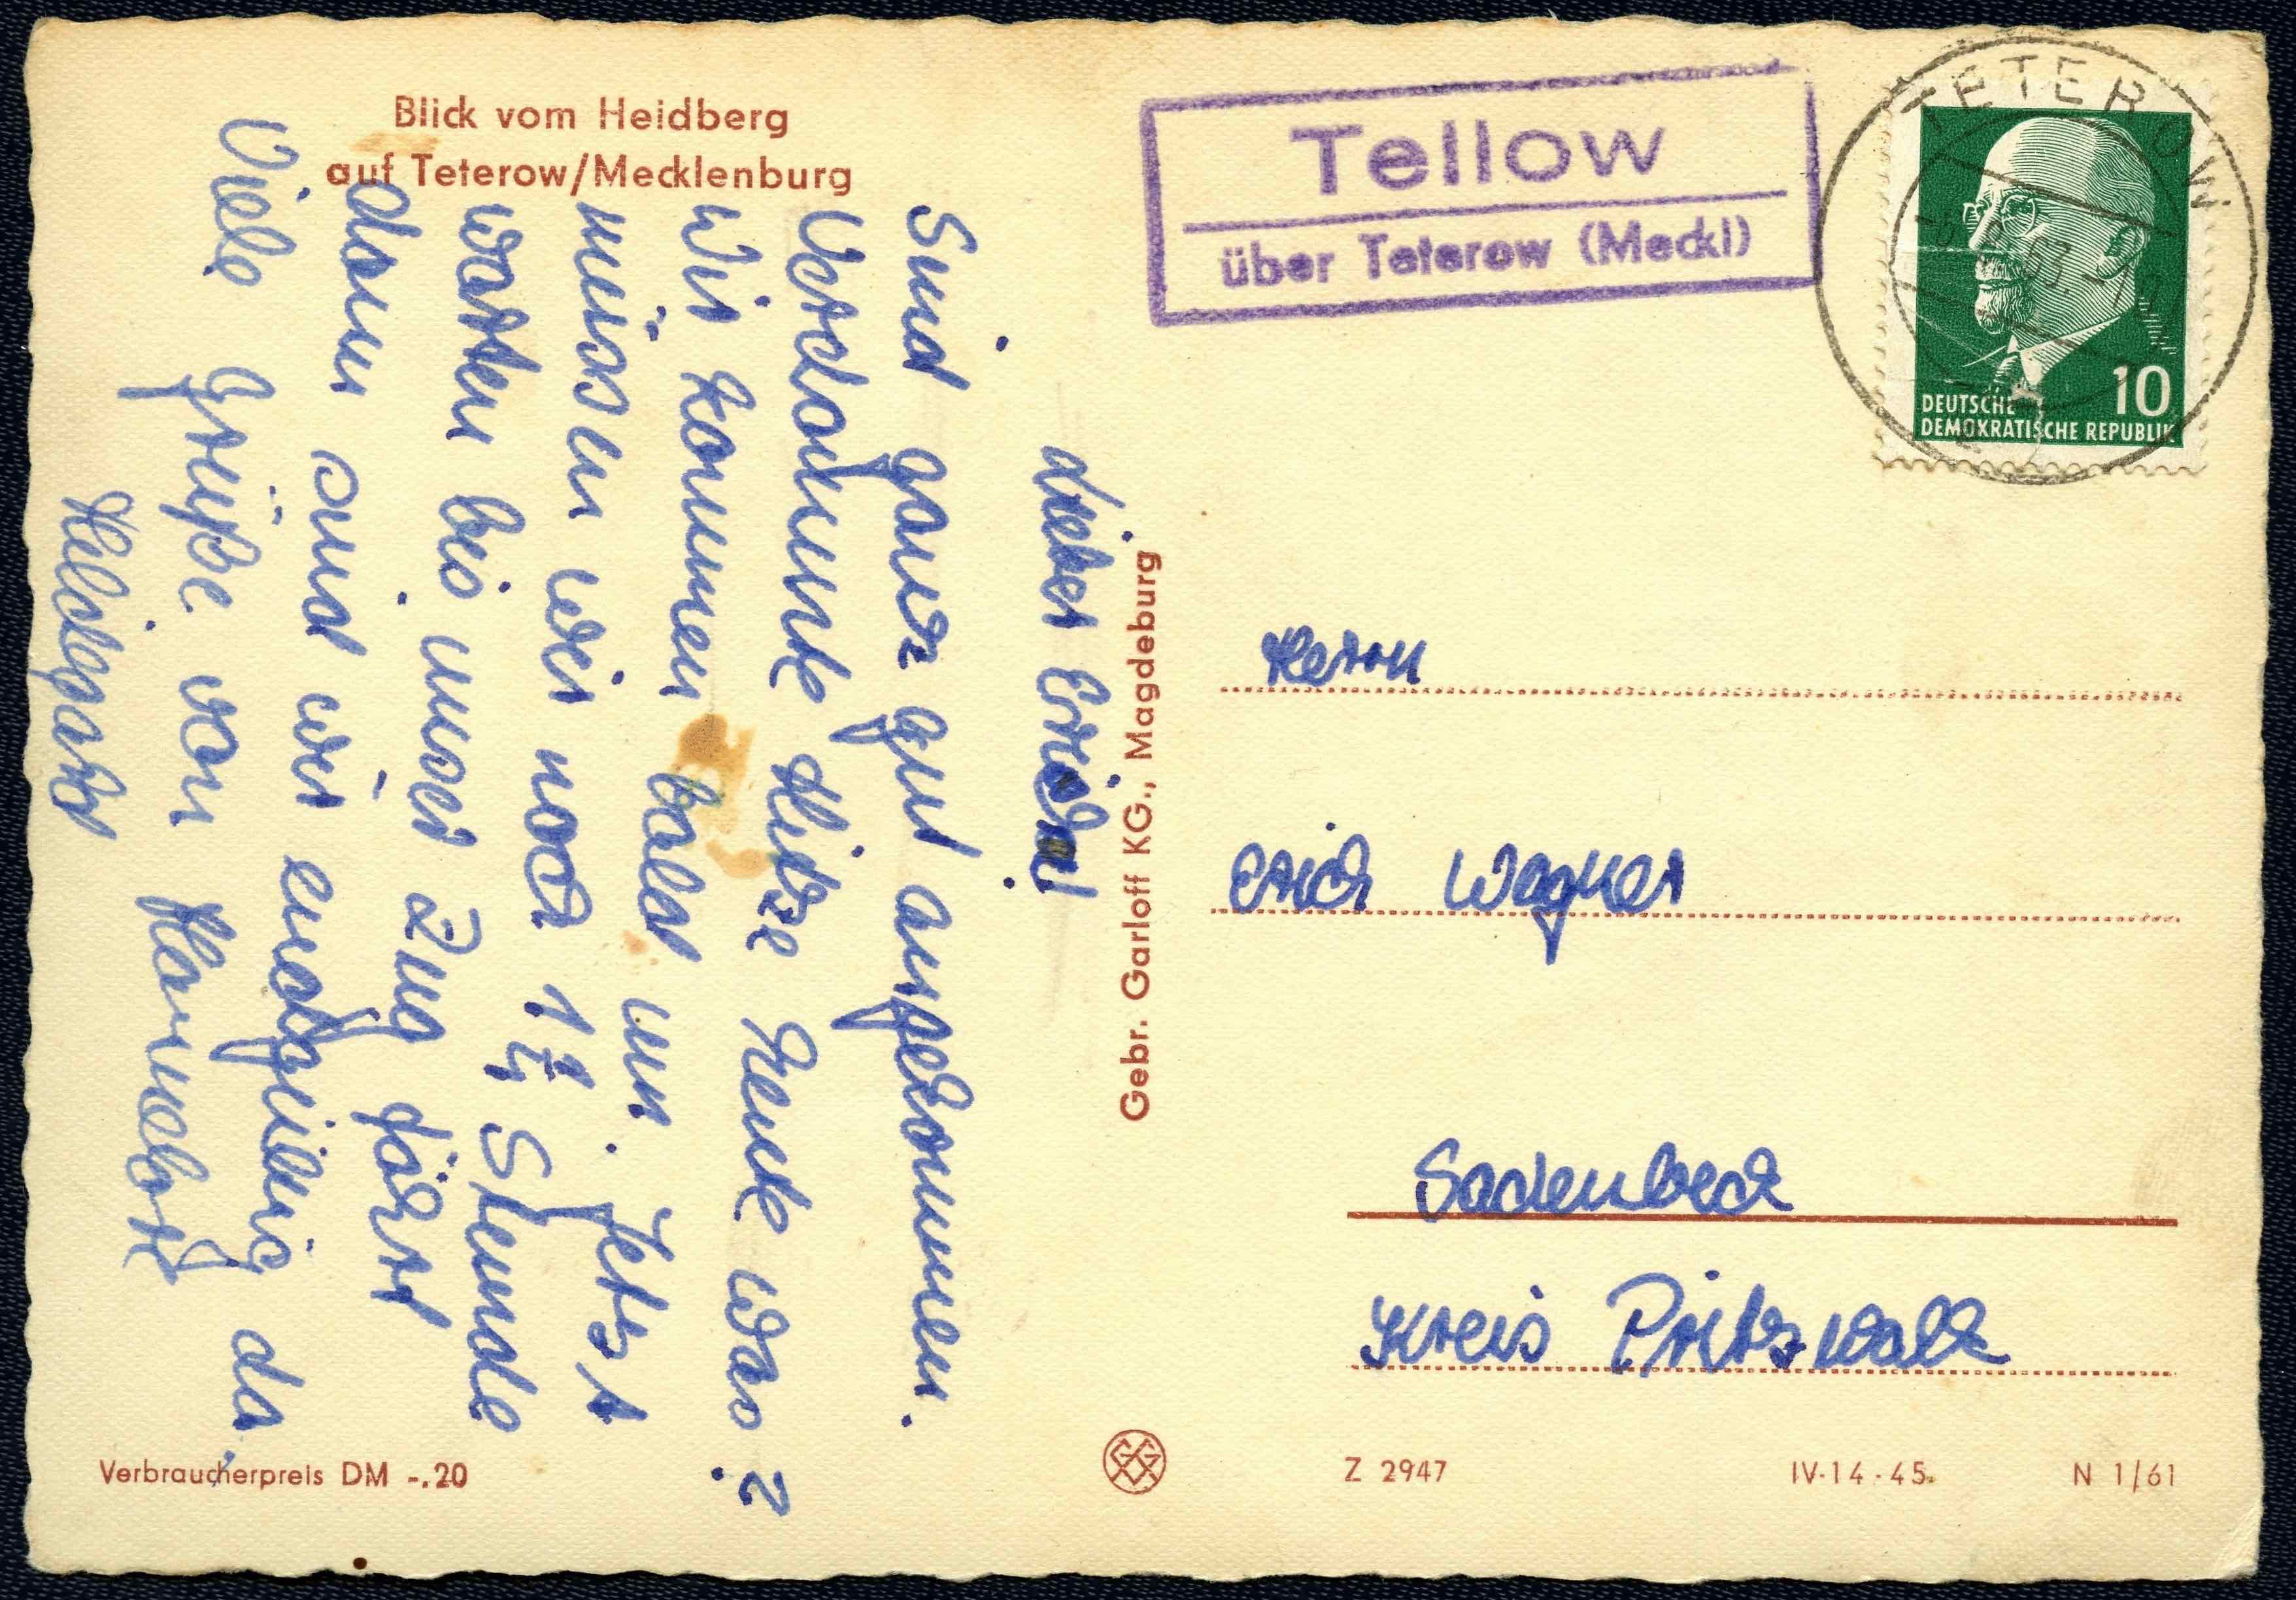 Blick vom Heidberg
auf Teterow/Mecklenburg
Lieber Erich!
Sind ganz gut angekommen.
Verdammte Hitze heute was?
Wir kommen bald um. Jetzt
müssen wir noch 1 1/4 Stunde
warten bis unser Zug fährt
dann sind wir endgültig da.
Viele Grüße von
Hildegard
Verbraucherpreis DM -.20
Gebr. Garloff KG., Magdeburg
Tellow
über Teterow (Meckl)
TETEROW
10
DEUTSCHE
DEMOKRATISCHE REPUBLIK
Herrn
Erich Wagner
Sadenbeck
Kreis Pritzwalk
Z 2947
IV-14-45.
N 1/61